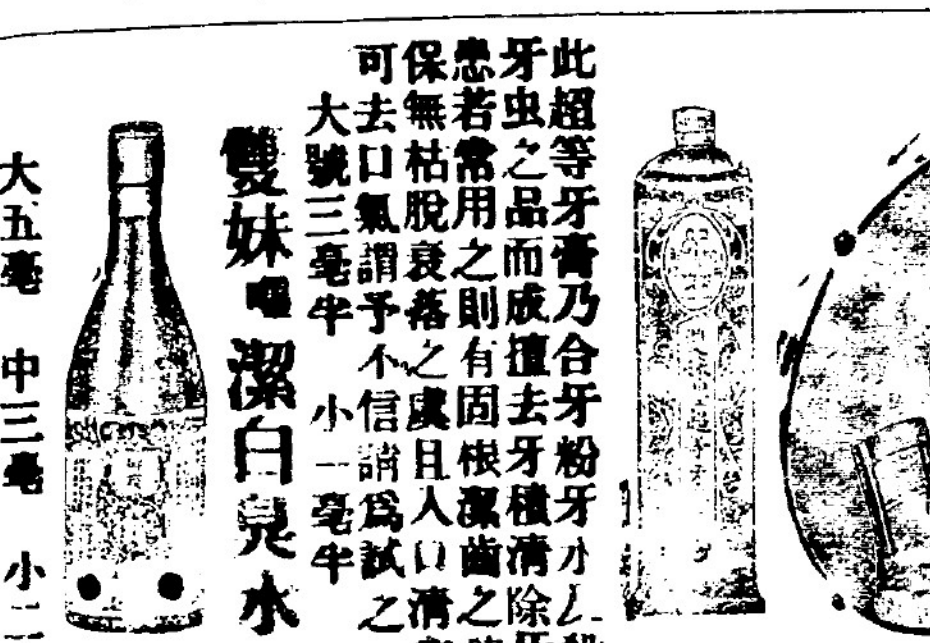 此超等牙膏乃合牙粉牙水
牙虫之品而成擅去牙積清除
患若常用之則有固根潔齒之
保無枯脫衰落之虞且人口清
可去口氣謂予不信請爲試之
大號三毫半 小一毫半
雙妹嚜潔白皃水
大五毫 中三毫 小二